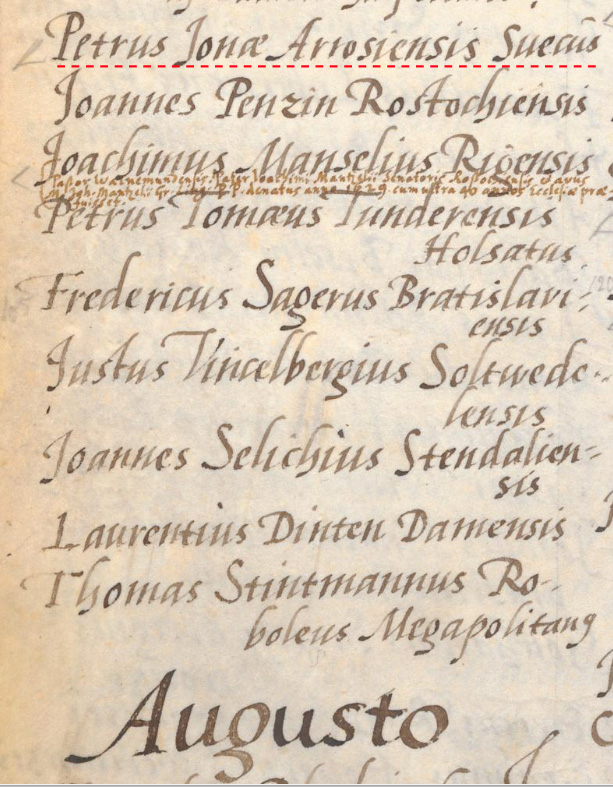 Petrus Jonæ Arrosiensis Suecus
Joannes Penzin Rostochiensis
Joachimus Manselius Rigensis
Pastor Warnemundensis. Pater Joachimi Mantzelii Senatoris Rostochiensis et avus
denatus anno 1629 cum ultra 40 annos Ecclesiæ præ-
fuisset.
Petrus Tomæus Tunderensis
Holsatus
Fredericus Sagerus Bratislavi-
ensis
Justus Vincelbergius Soltwede-
lensis
Joannes Selichius Stendalien-
sis
Laurentius Dinten Damensis
Thomas Stintmannus Ro-
boleus Megapolitanꝰ
Augusto